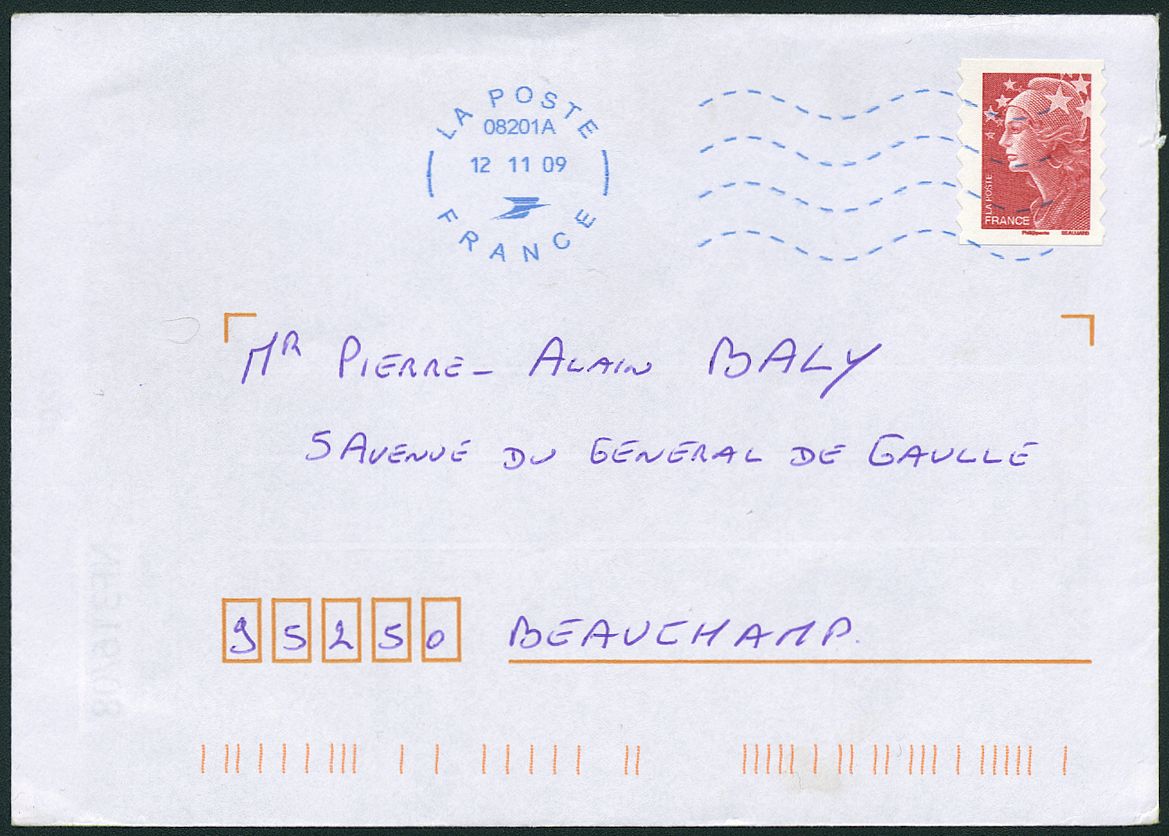 LA POSTE
08201A
12 11 09
FRANCE
LA POSTE
FRANCE
Philippente BEAUJARD
MR PIERRE- ALAIN BALY
5 AVENUE DU GENERAL DE GAULLE
95250 BEAUCHAMP.